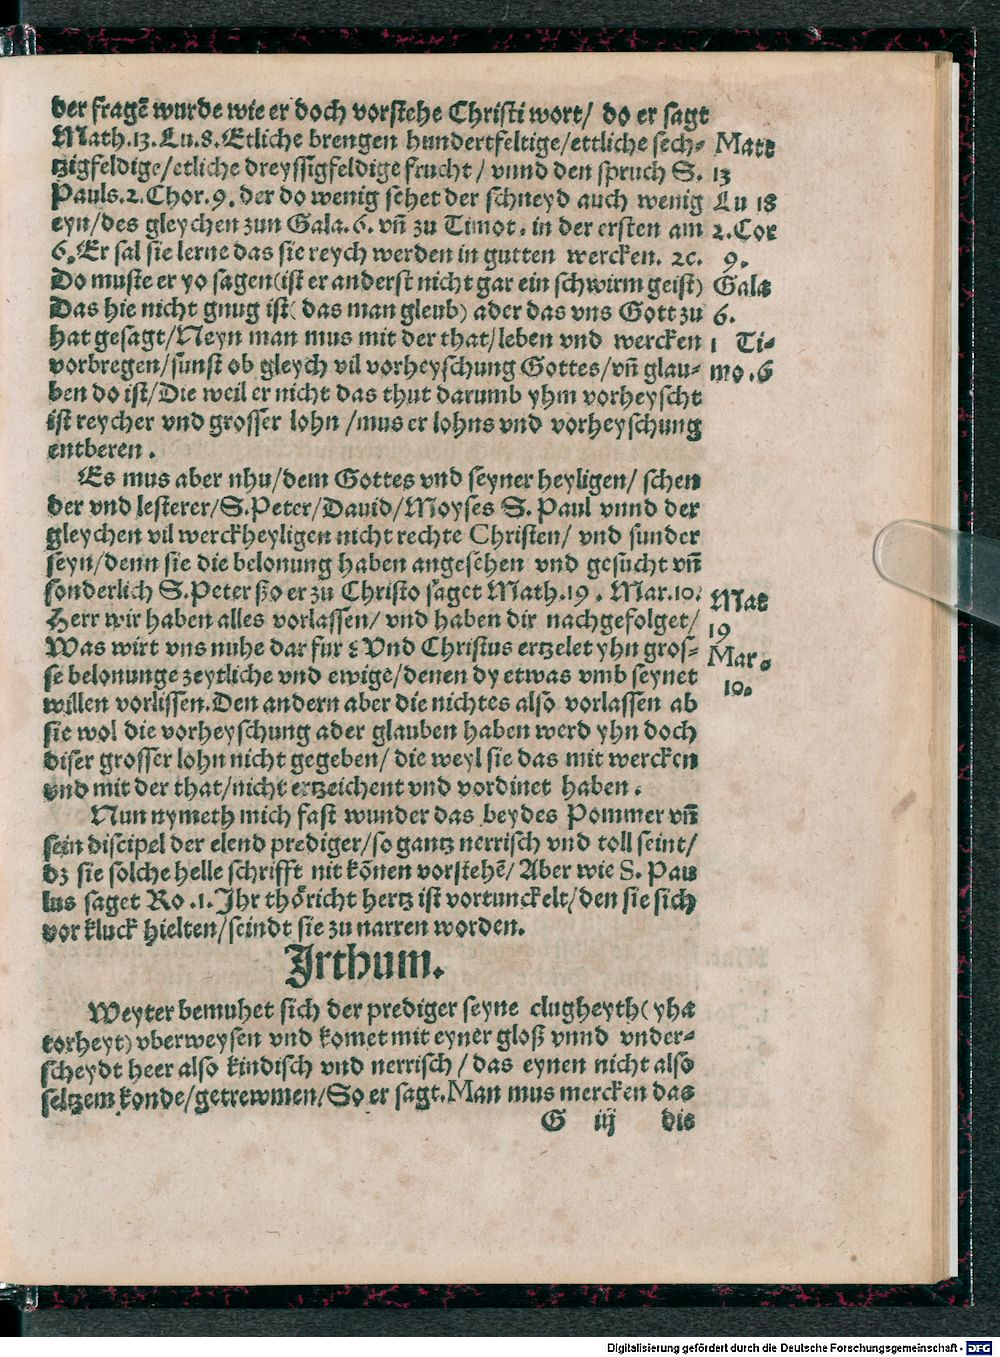 der fragē wurde wie er doch vorstehe Christi wort/ do er sagt
Math.13.Lu.8.Etliche brengen hundertfeltige/ettliche sech-
tzigfeldige/etliche dreyssīgfeldige frucht/ vnnd den spruch S.
Pauls.2.Chor.9. der do wenig sehet der schneyd auch wenig
eyn/des gleychen zun Gala.6. vn̄ zu Timot. in der ersten am
6. Er sal sie lerne das sie reych werden in gutten wercken. ⁊c.
Do muste er yo sagen(ist er anderst nicht gar ein schwirm geist)
Das hie nicht gnug ist( das man gleub) ader das vns Gott zu
hat gesagt/Neyn man mus mit der that/leben vnd wercken
vorbregen/sunst ob gleych vil vorheyschung Gottes/vn̄ glau-
ben do ist/Die weil er nicht das thut darumb yhm vorheyscht
ist reycher vnd grosser lohn/mus er lohns vnd vorheyschung
entberen.
Matt
13
Lu 18
2.Cor
9.
Gala
6.
1 Ti-
mo.6
Es mus aber nhu/dem Gottes vnd seyner heyligen/ schen
der vnd lesterer/S.Peter/Dauid/Moyses S. Paul vnnd der
gleychen vil werckheyligen nicht rechte Christen/ vnd sunder
seyn/denn sie die belonung haben angesehen vnd gesucht vn̄
sonderlich S.Peter ßo er zu Christo saget Math.19. Mar.10.
Herr wir haben alles vorlassen/ vnd haben dir nachgefolget/
Was wirt vns nuhe dar fur? Vnd Christus ertzelet yhn gros-
se belonunge zeytliche vnd ewige/denen dy etwas vmb seynet
willen vorlissen.Den andern aber die nichtes also vorlassen ab
sie wol die vorheyschung ader glauben haben werd yhn doch
diser grosser lohn nicht gegeben/ die weyl sie das mit wercken
vnd mit der that/nicht ertzeichent vnd vordinet haben.
Mat
19
Mar.
10.
Nun nymeth mich fast wunder das beydes Pommer vn̄
sein discipel der elend prediger/so gantz nerrisch vnd toll seint/
dz sie solche helle schrifft nit kōnen vorstehē/ Aber wie S. Pau
lus saget Ro.1. Jhr thöricht hertz ist vortunckelt/den sie sich
vor kluck hielten/seindt sie zu narren worden.
Jrthum.
Weyter bemuhet sich der prediger seyne clugheyth( yha
torheyt) vberweysen vnd komet mit eyner gloß vnnd vnder-
scheydt heer also kindisch vnd nerrisch/ das eynen nicht also
seltzem konde/getrewmen/So er sagt.Man mus mercken das
G iij die
Digitalisierung gefördert durch die Deutsche Forschungsgemeinschaft - DFG